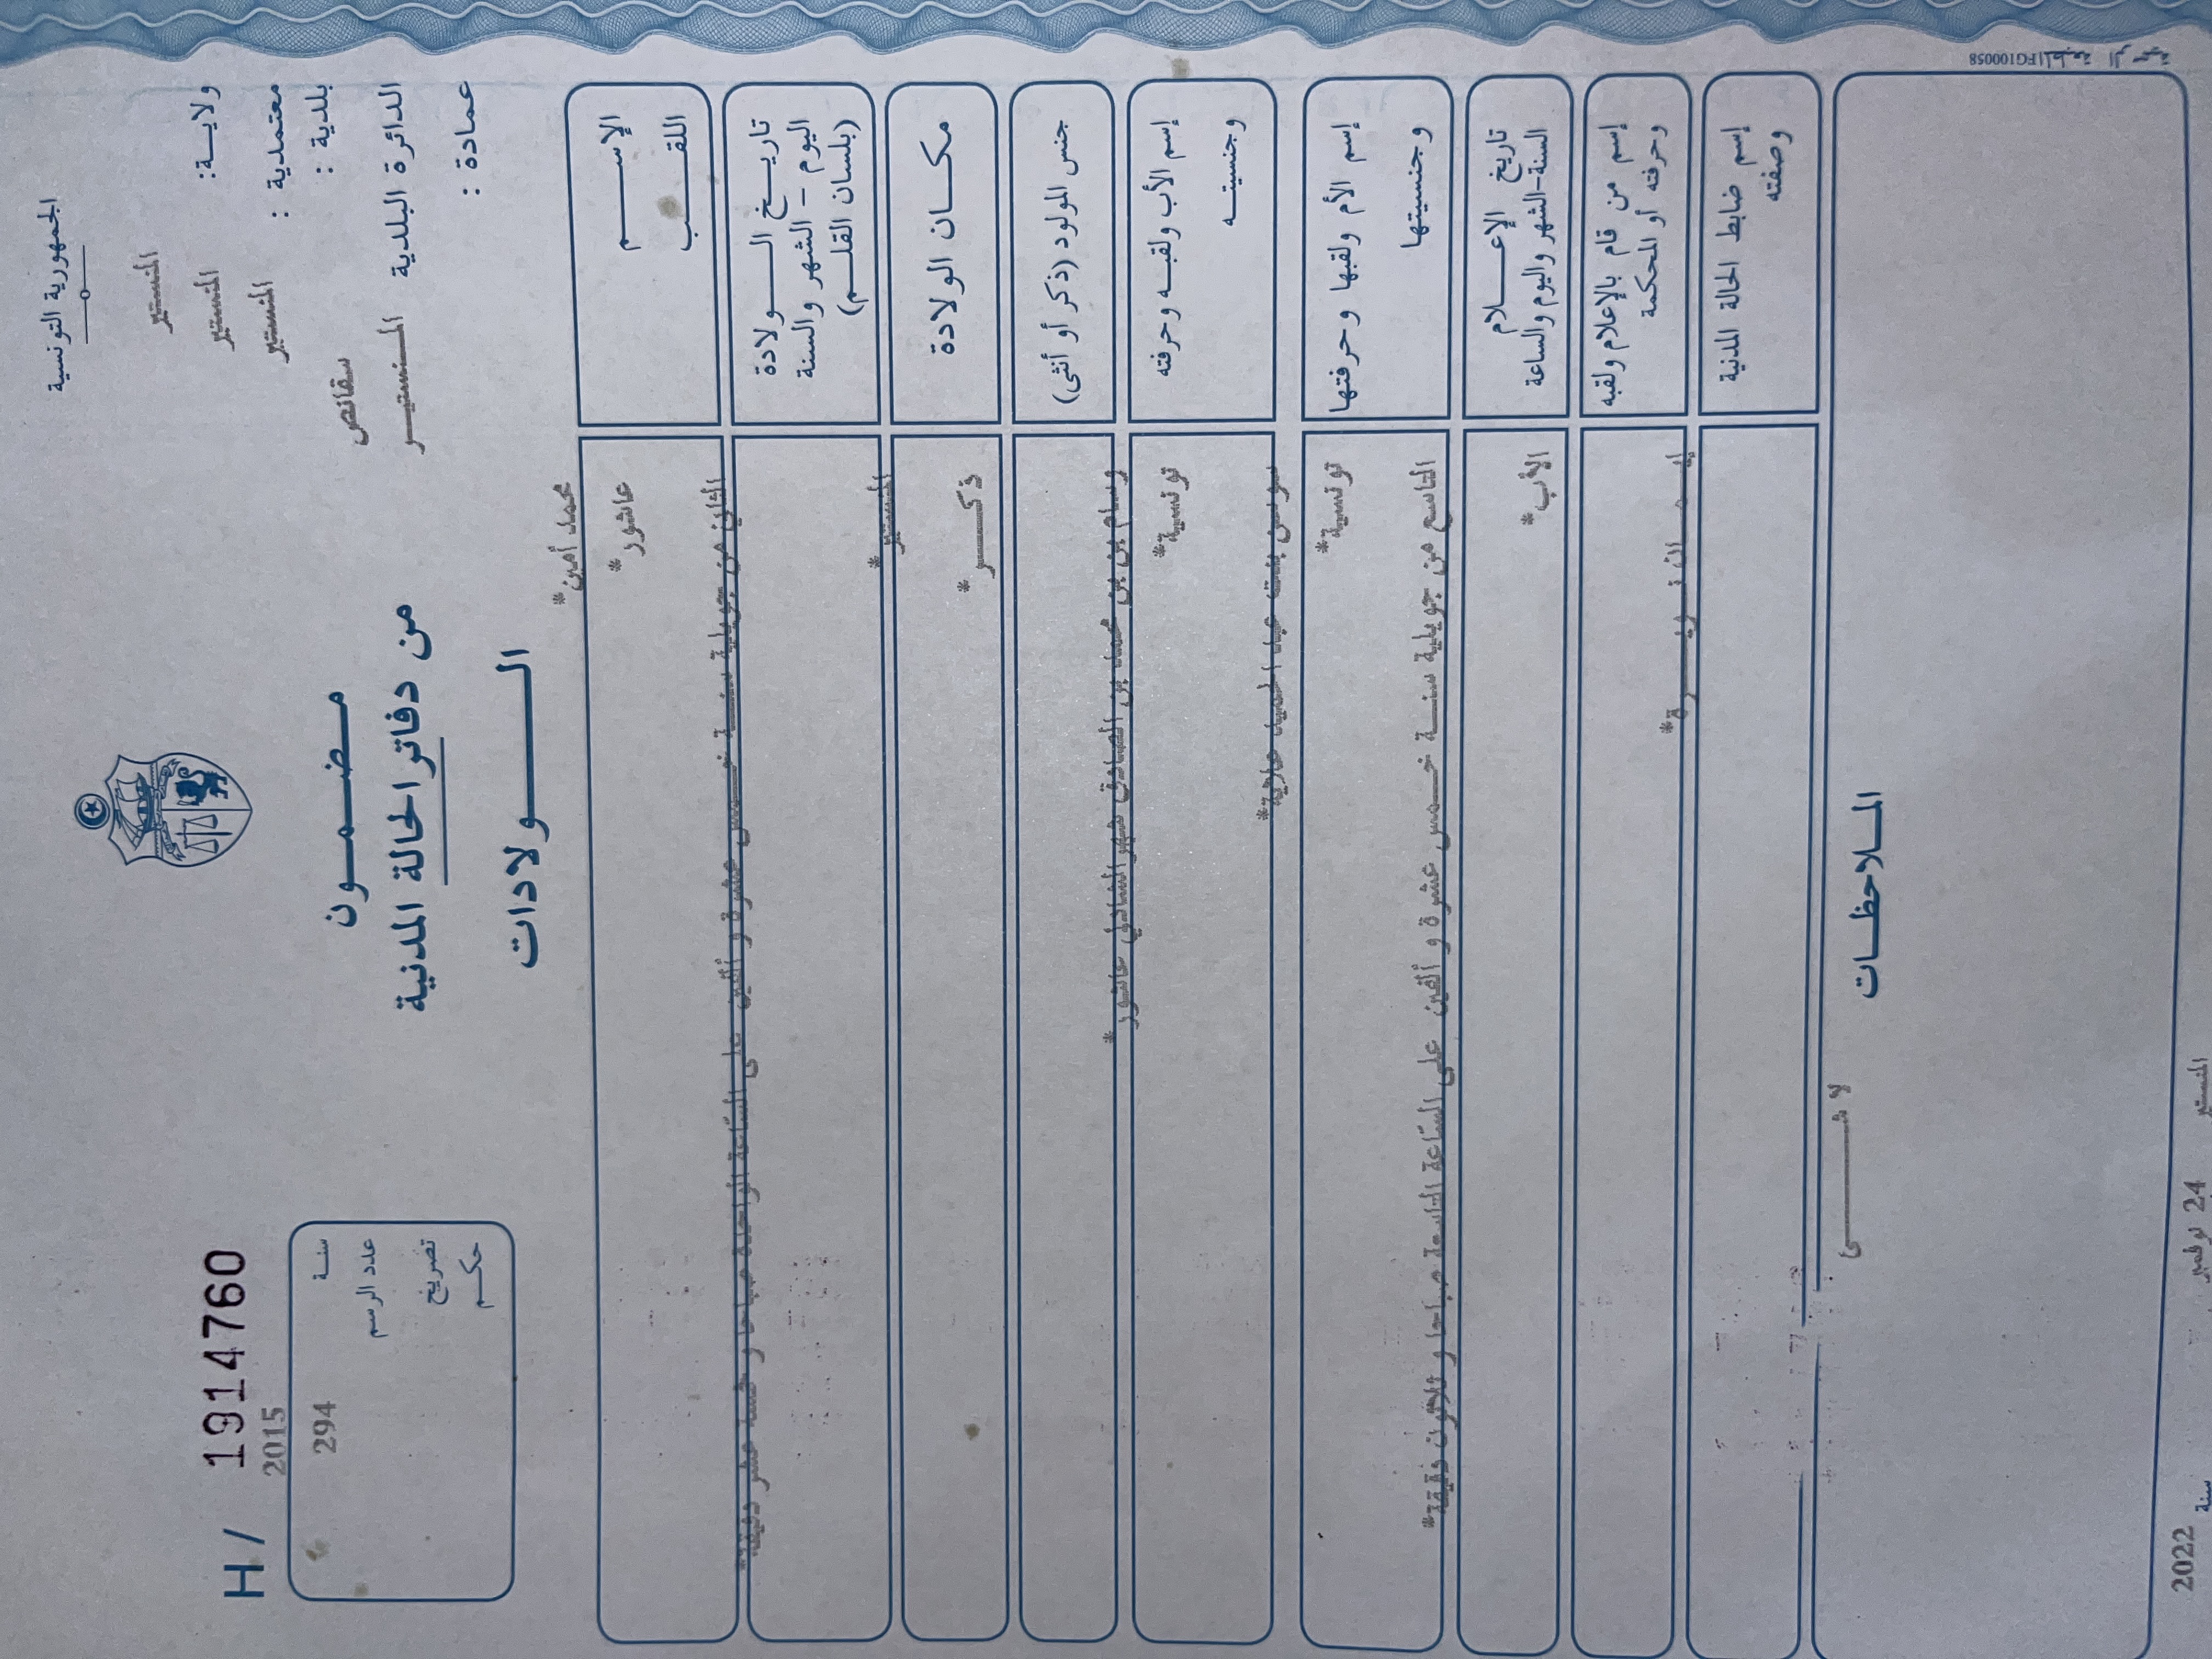 الجمهورية التونسية
المنستير
ولاية:
المنستير
معتمدية :
المنستير
بلدية :
سقانص
الدائرة البلدية
المنستير
عمادة :
مضمون
من دفاتر الحالة المدنية
الولادات
H / 1914760
2015
سنة
294
عدد الرسم
تصريح
حكم
محمد أمين*
الإسم
عاشور*
اللقب
الثاني من جويلية سنة خمس عشرة و ألفين على الساعة الواحدة صباحا و خمسة عشر دقيقة*
تاريخ الولادة
اليوم - الشهر والسنة
(بلسان القلم)
المنستير*
مكان الولادة
ذكر*
جنس المولود (ذكر أو أنثى)
وسام بن محمد بن الصادق شهر الشاذلي عاشور*
إسم الأب ولقبه وحرفته
تونسية*
وجنسيته
سوسن بنت عبد الحميد
إسم الأم ولقبها وحرفتها
تونسية*
وجنسيتها
التاسع من جويلية سنة خمس عشرة و ألفين على الساعة التاسعة صباحا و ثلاثون دقيقة*
تاريخ الإعلام
السنة-الشهر واليوم والساعة
الأب*
إسم من قام بالإعلام ولقبه
وحرفته أو المحكمة
إسم ضابط الحالة المدنية
وصفته
الملاحظات
لا شيء
FG100058
المنستير
24 نوفمبر
سنة 2022